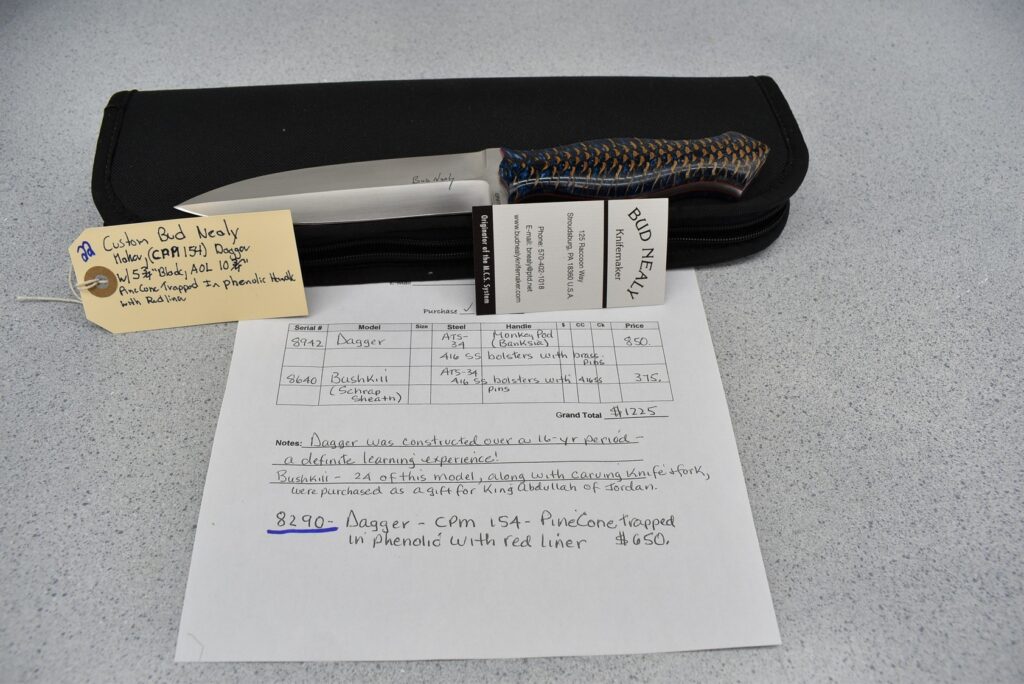 Bud Nealy
22
Custom Bud Nealy
(CPM 154) Dagger
w/ 5 3/4" Blade, AOL 10 3/4"
PineCone Trapped In phenolic Handle
with Red liner
BUD NEALY
Knifemaker
125 Raccoon Way
Stroudsburg, PA 18360 U.S.A.
Phone: 570-402-1018
E-mail: bnealy@ptd.net
www.budnealyknifemaker.com
Originator of the M.C.S. System
Purchase ✓
Serial # Model Size Steel Handle $ CC Ck Price
8942 Dagger ATS-34 Monkey Pod (Banksia) 850.
416 SS bolsters with brass pins
8640 Bushkill (Schrap Sheath) ATS-34 375.
416 SS bolsters with 416 SS pins
Grand Total $1225
Notes: Dagger was constructed over a 16-yr period -
a definite learning experience!
Bushkill - 24 of this model, along with carving knife & fork,
were purchased as a gift for King Abdullah of Jordan.
8290 - Dagger - CPM 154 - PineCone trapped
in phenolic with red liner $650.